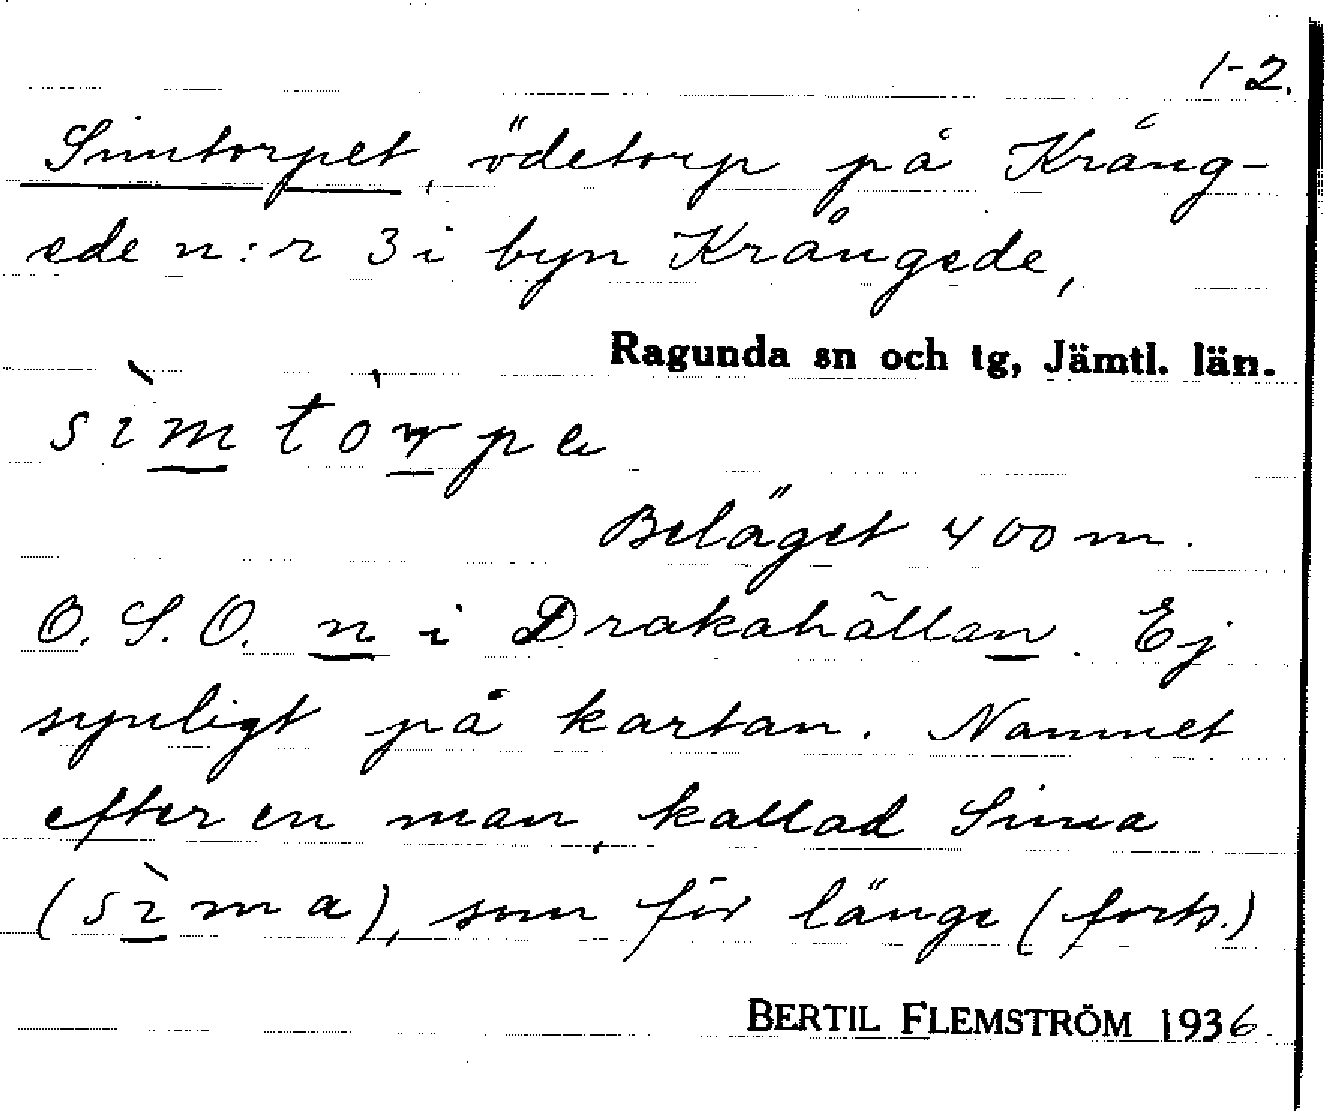 1-2.
Simtorpet, ödetorp på Kräng-
ede n:r 3 i byn Krångede,
Ragunda sn och tg, Jämtl. län.
sìmtòrpe
Beläget 400 m.
O.S.O. n i Drakahällan. Ej
synligt på kartan. Namnet
efter en man, kallad Sima
(sìma), som för länge (forts.)
BERTIL FLEMSTRÖM 1936.